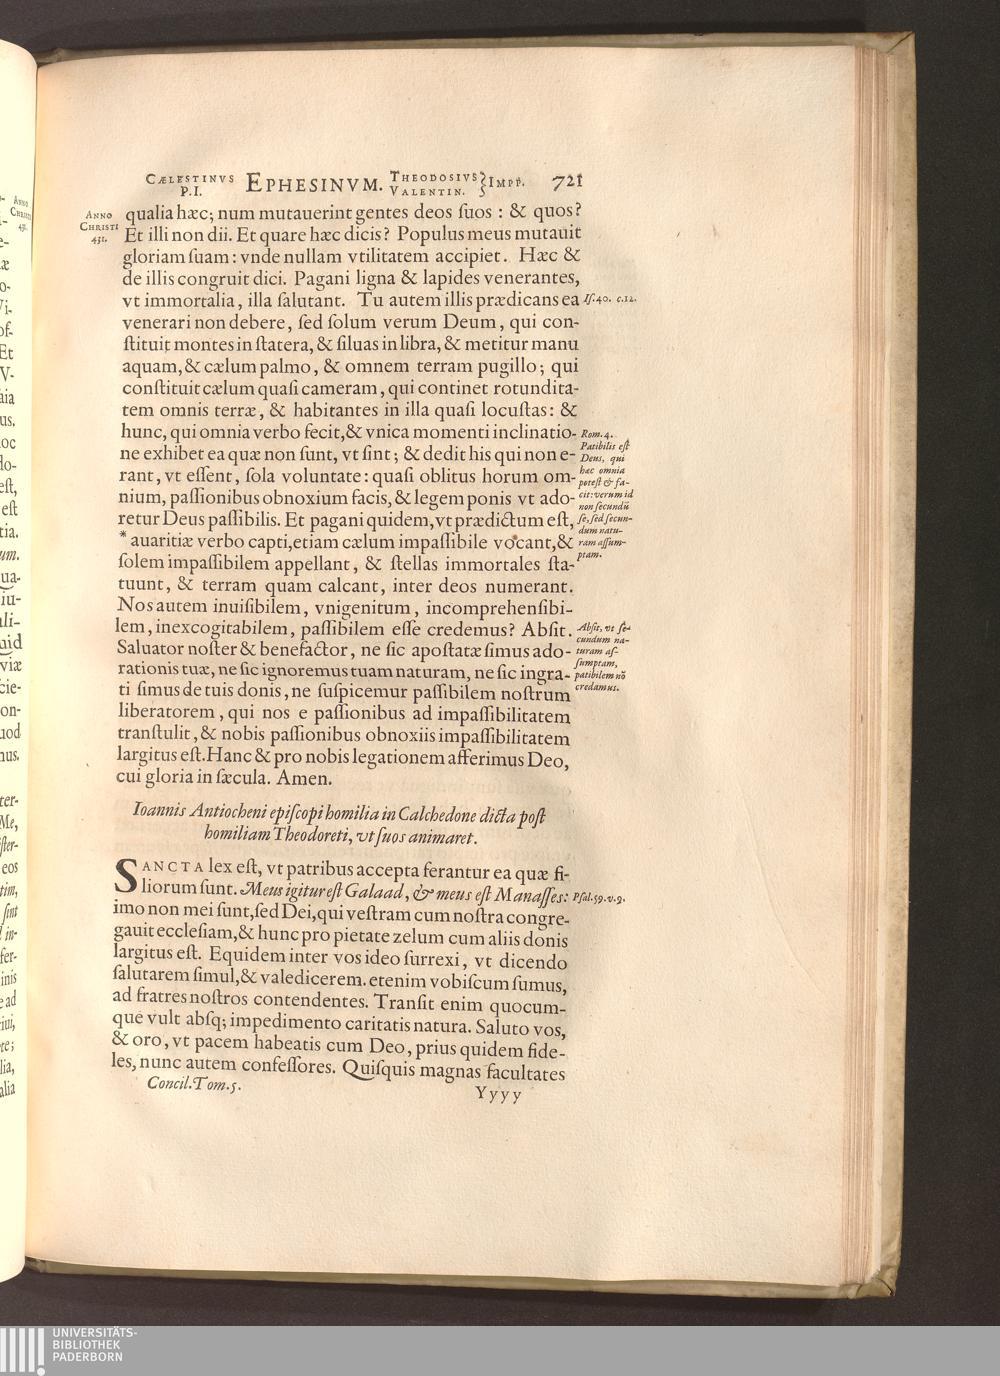 CÆLESTINVS P. I. EPHESINVM. THEODOSIVS VALENTIN. IMPP. 721
ANNO CHRISTI 431.
qualia hæc; num mutauerint gentes deos ſuos : & quos?
Et illi non dii. Et quare hæc dicis? Populus meus mutauit
gloriam ſuam: vnde nullam vtilitatem accipiet. Hæc &
de illis congruit dici. Pagani ligna & lapides venerantes,
vt immortalia, illa ſalutant. Tu autem illis prædicans ea
Iſ. 40. c. 12.
venerari non debere, ſed ſolum verum Deum, qui con-
ſtituit montes in ſtatera, & ſiluas in libra, & metitur manu
aquam, & cælum palmo, & omnem terram pugillo; qui
conſtituit cælum quaſi cameram, qui continet rotundita-
tem omnis terræ, & habitantes in illa quaſi locuſtas: &
hunc, qui omnia verbo fecit, & vnica momenti inclinatio-
Rom. 4.
ne exhibet ea quæ non ſunt, vt ſint; & dedit his qui non e-
rant, vt eſſent, ſola voluntate: quaſi oblitus horum om-
nium, paſſionibus obnoxium facis, & legem ponis vt ado-
retur Deus paſſibilis. Et pagani quidem, vt prædictum eſt,
Patibilis eſt
Deus, qui
hæc omnia
poteſt & fa-
cit: verum id
non ſecundū
ſe, ſed ſecun-
dum natu-
ram aſſum-
ptam.
* auaritiæ verbo capti, etiam cælum impaſſibile vocant, &
ſolem impaſſibilem appellant, & ſtellas immortales ſta-
tuunt, & terram quam calcant, inter deos numerant.
Nos autem inuiſibilem, vnigenitum, incomprehenſibi-
lem, inexcogitabilem, paſſibilem eſſe credemus? Abſit.
Saluator noſter & benefactor, ne ſic apoſtatæ ſimus ado-
rationis tuæ, ne ſic ignoremus tuam naturam, ne ſic ingra-
ti ſimus de tuis donis, ne ſuſpicemur paſſibilem noſtrum
Abſit, vt ſe-
cundum na-
turam aſ-
ſumptam,
patibilem nō
credamus.
liberatorem, qui nos e paſſionibus ad impaſſibilitatem
tranſtulit, & nobis paſſionibus obnoxiis impaſſibilitatem
largitus eſt. Hanc & pro nobis legationem afferimus Deo,
cui gloria in ſæcula. Amen.
Ioannis Antiocheni epiſcopi homilia in Calchedone dicta poſt
homiliam Theodoreti, vt ſuos animaret.
SANCTA lex eſt, vt patribus accepta ferantur ea quæ fi-
liorum ſunt. Meus igitur eſt Galaad, & meus eſt Manaſſes:
Pſal. 59. v. 9.
imo non mei ſunt, ſed Dei, qui veſtram cum noſtra congre-
gauit eccleſiam, & hunc pro pietate zelum cum aliis donis
largitus eſt. Equidem inter vos ideo ſurrexi, vt dicendo
ſalutarem ſimul, & valedicerem. etenim vobiſcum ſumus,
ad fratres noſtros contendentes. Tranſit enim quocum-
que vult abſq; impedimento caritatis natura. Saluto vos,
& oro, vt pacem habeatis cum Deo, prius quidem fide-
les, nunc autem confeſſores. Quiſquis magnas facultates
Concil. Tom. 5.
Yyyy
UNIVERSITÄTS-
BIBLIOTHEK
PADERBORN